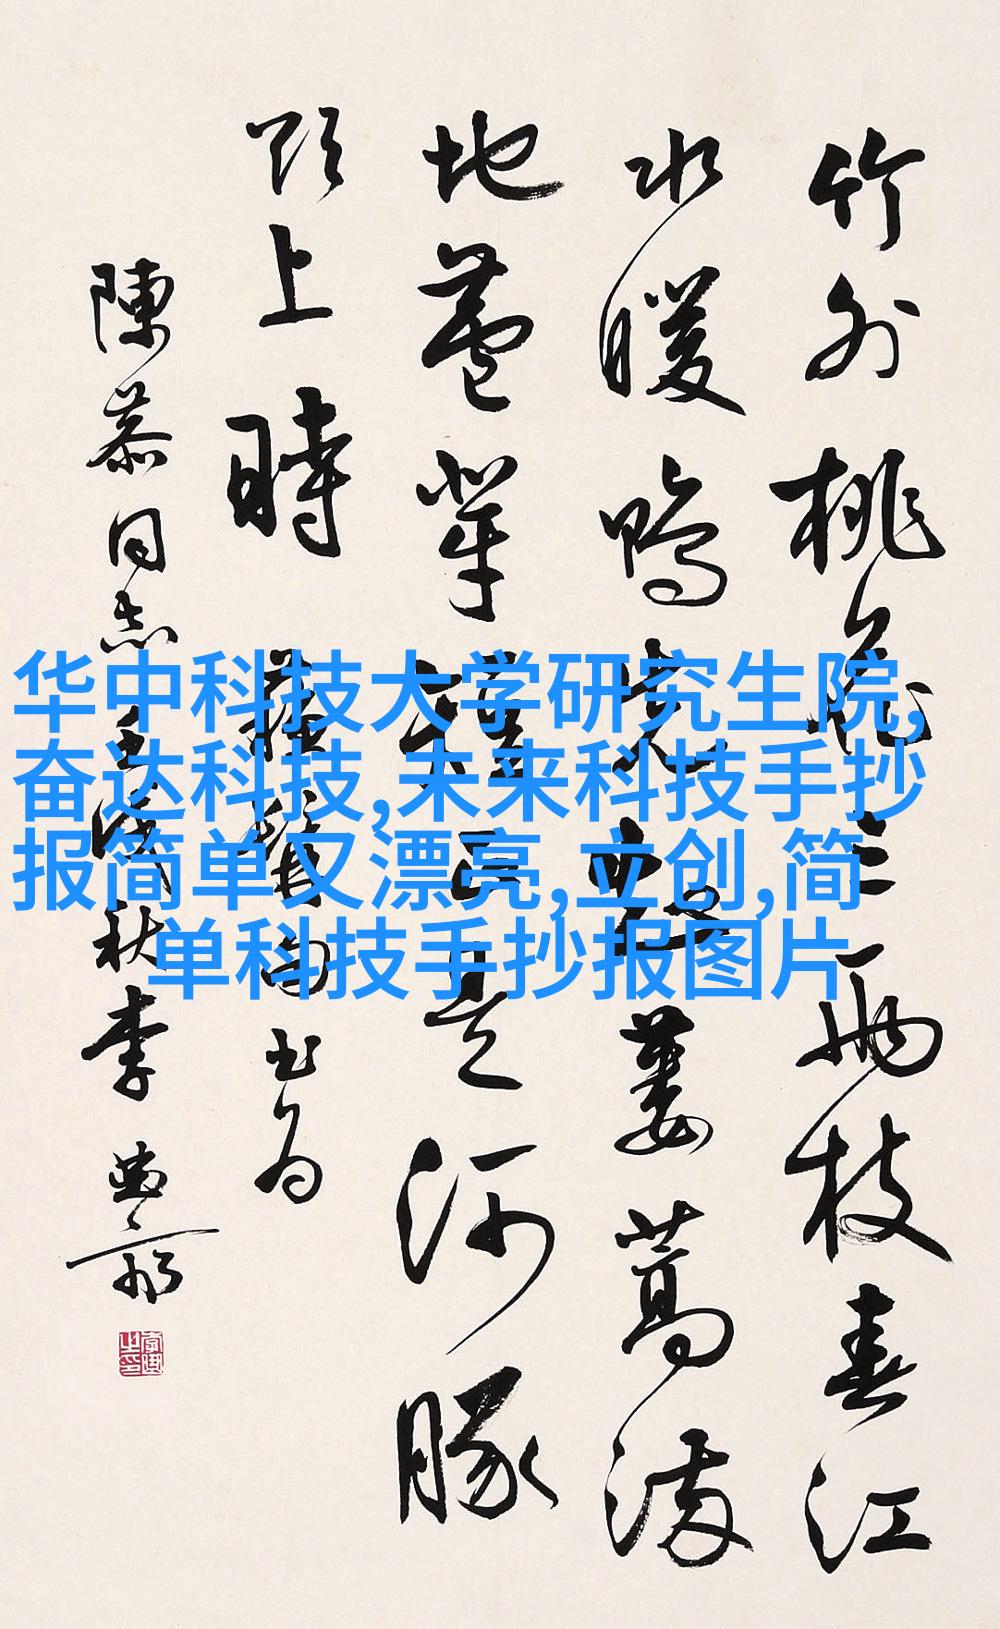 竹外桃花三兩枝春江
水暖鴨先知蔞蒿滿
地蘆芽短正是河豚
欲上時
同志 秋李
华中科技大学研究生院,
奋达科技,未来科技手抄
报简单又漂亮,立创,简
单科技手抄报图片